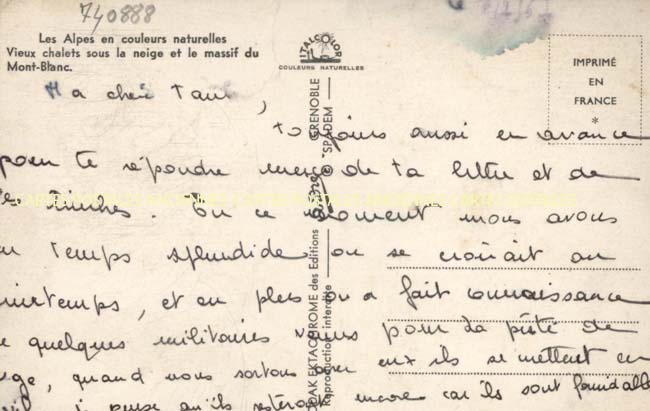 740888
Les Alpes en couleurs naturelles
Vieux chalets sous la neige et le massif du
Mont-Blanc.
ITALCOLOR
COULEURS NATURELLES
IMPRIMÉ
EN
FRANCE
*
Ma chère
toujours aussi en avance
pour te répondre merci de ta lettre et de
timbres. En ce moment nous avons
temps splendide on se croirait au
printemps, et en plus on a fait connaissance
de quelques militaires venus pour la piste de
luge, quand nous sortons avec eux ils se mettent en
je pense qu'ils resteront encore car ils sont formidables
KODAK EKTACHROME des Editions GRENOBLE
Reproduction interdite "SPADEM"